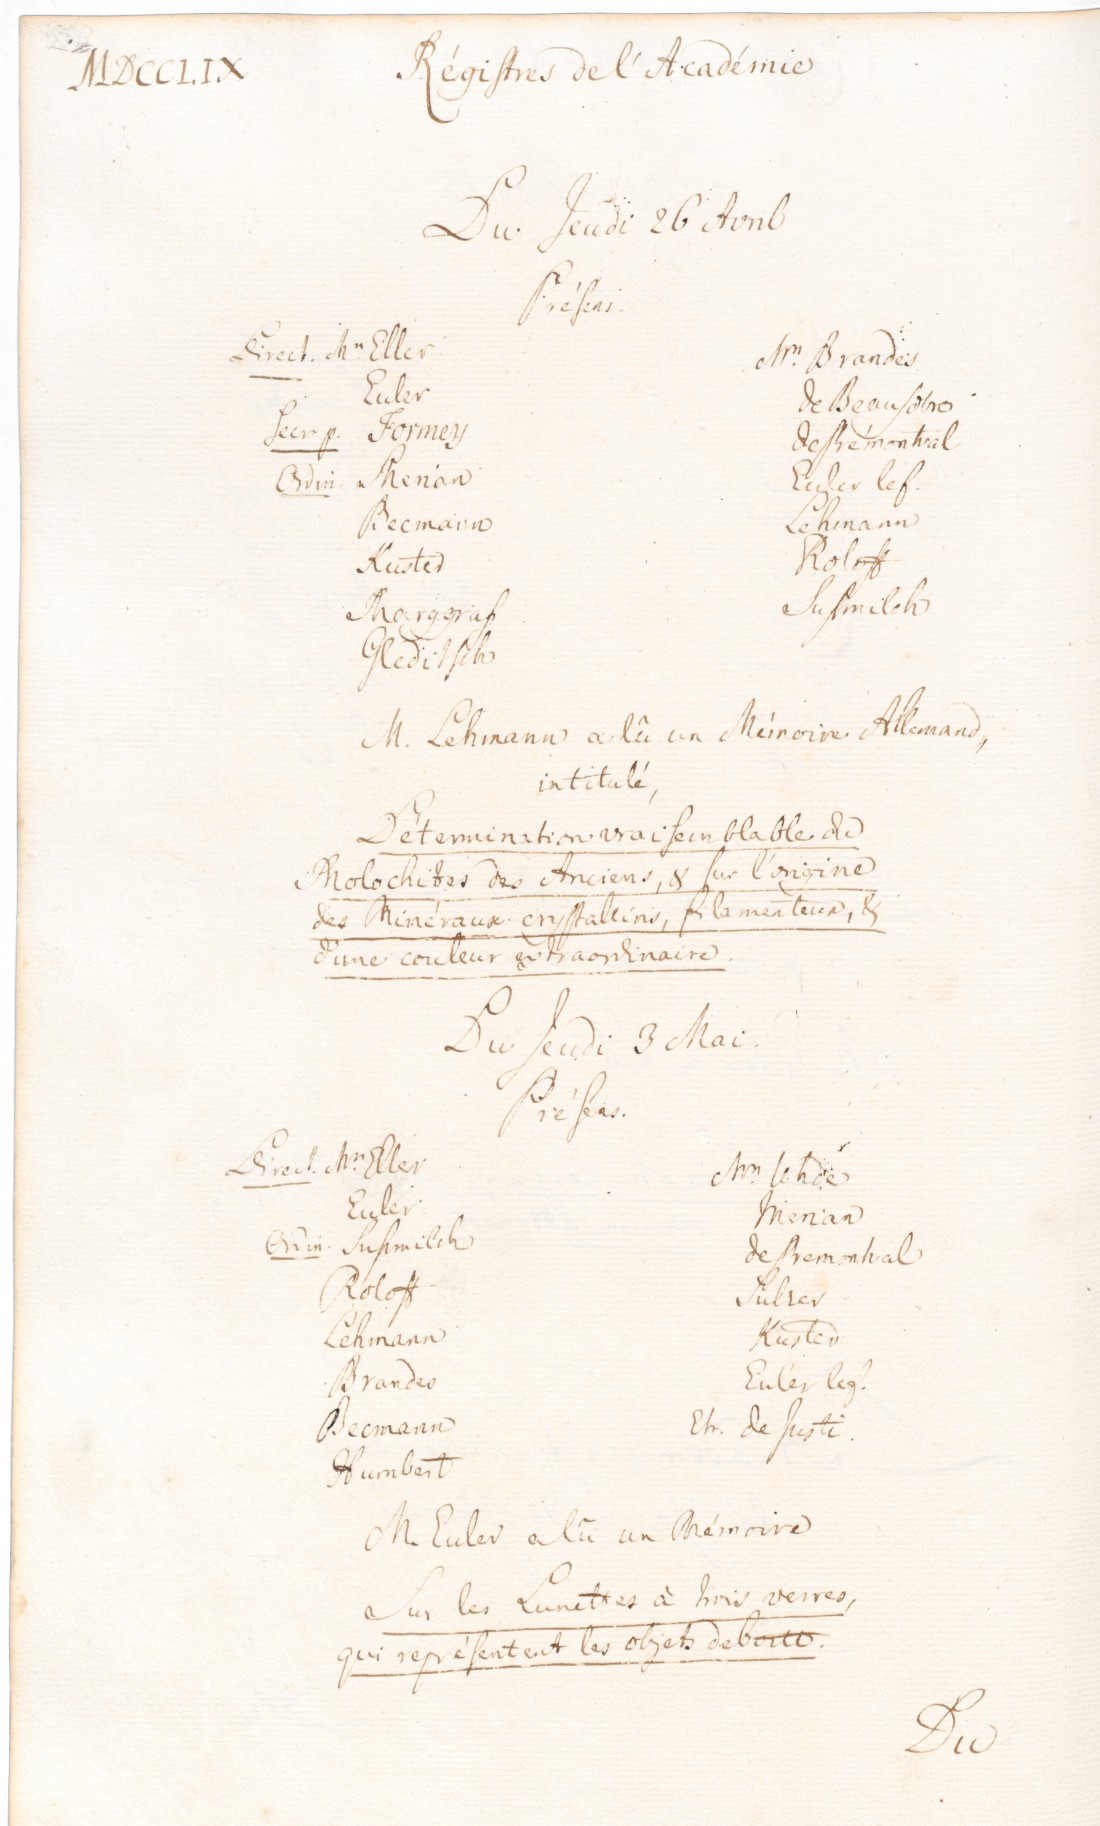 MDCCLIX
Régistres de l'Académie
Du Jeudi 26 Avril
Présens.
Direct. Mrs Eller
Euler
Secr. p. Formey
Ordin. Merian
Becmann
Kuster
Marggraf
Gleditsch
Mrs. Brandes
de Beausobre
de Prémontval
Euler le f.
Lehmann
Roloff
Susmilch
M. Lehmann a lû un Mémoire Allemand,
intitulé,
Détermination vraisemblable du
Molochites des Anciens, & sur l'origine
des Minéraux crystallins, filamenteux, &
d'une couleur extraordinaire.
Du Jeudi 3 Mai.
Présens.
Direct. Mrs Eller
Euler
Ordin. Susmilch
Roloff
Lehmann
Brandes
Becmann
Humbert
Mrs
Merian
de Premontval
Sulzer
Kuster
Euler le f.
Etr. de Justi.
M. Euler a lû un Mémoire
Sur les Lunettes à trois verres,
qui représentent les objets debout.
Du